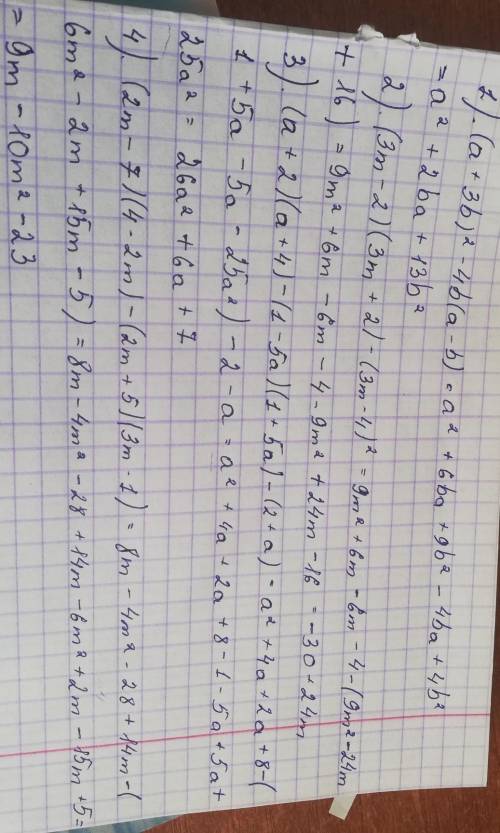 1). (a + 3b)² - 4b(a - b) = a² + 6ba + 9b² - 4ba + 4b²
= a² + 2ba + 13b²
2). (3m - 2)(3m + 2) - (3m - 4)² = 9m² + 6m - 6m - 4 - (9m² - 24m
+ 16) = 9m² + 6m - 6m - 4 - 9m² + 24m - 16 = -30 + 24m
3). (a + 2)(a + 4) - (1 - 5a)(1 + 5a) - (2 + a) = a² + 4a + 2a + 8 - (
1 + 5a - 5a - 25a²) - 2 - a = a² + 4a + 2a + 8 - 1 - 5a + 5a +
25a² = 26a² + 6a + 7
4). (2m - 7)(4 - 2m) - (2m + 5)(3m - 1) = 8m - 4m² - 28 + 14m - (
6m² - 2m + 15m - 5) = 8m - 4m² - 28 + 14m - 6m² + 2m - 15m + 5 =
= 9m - 10m² - 23